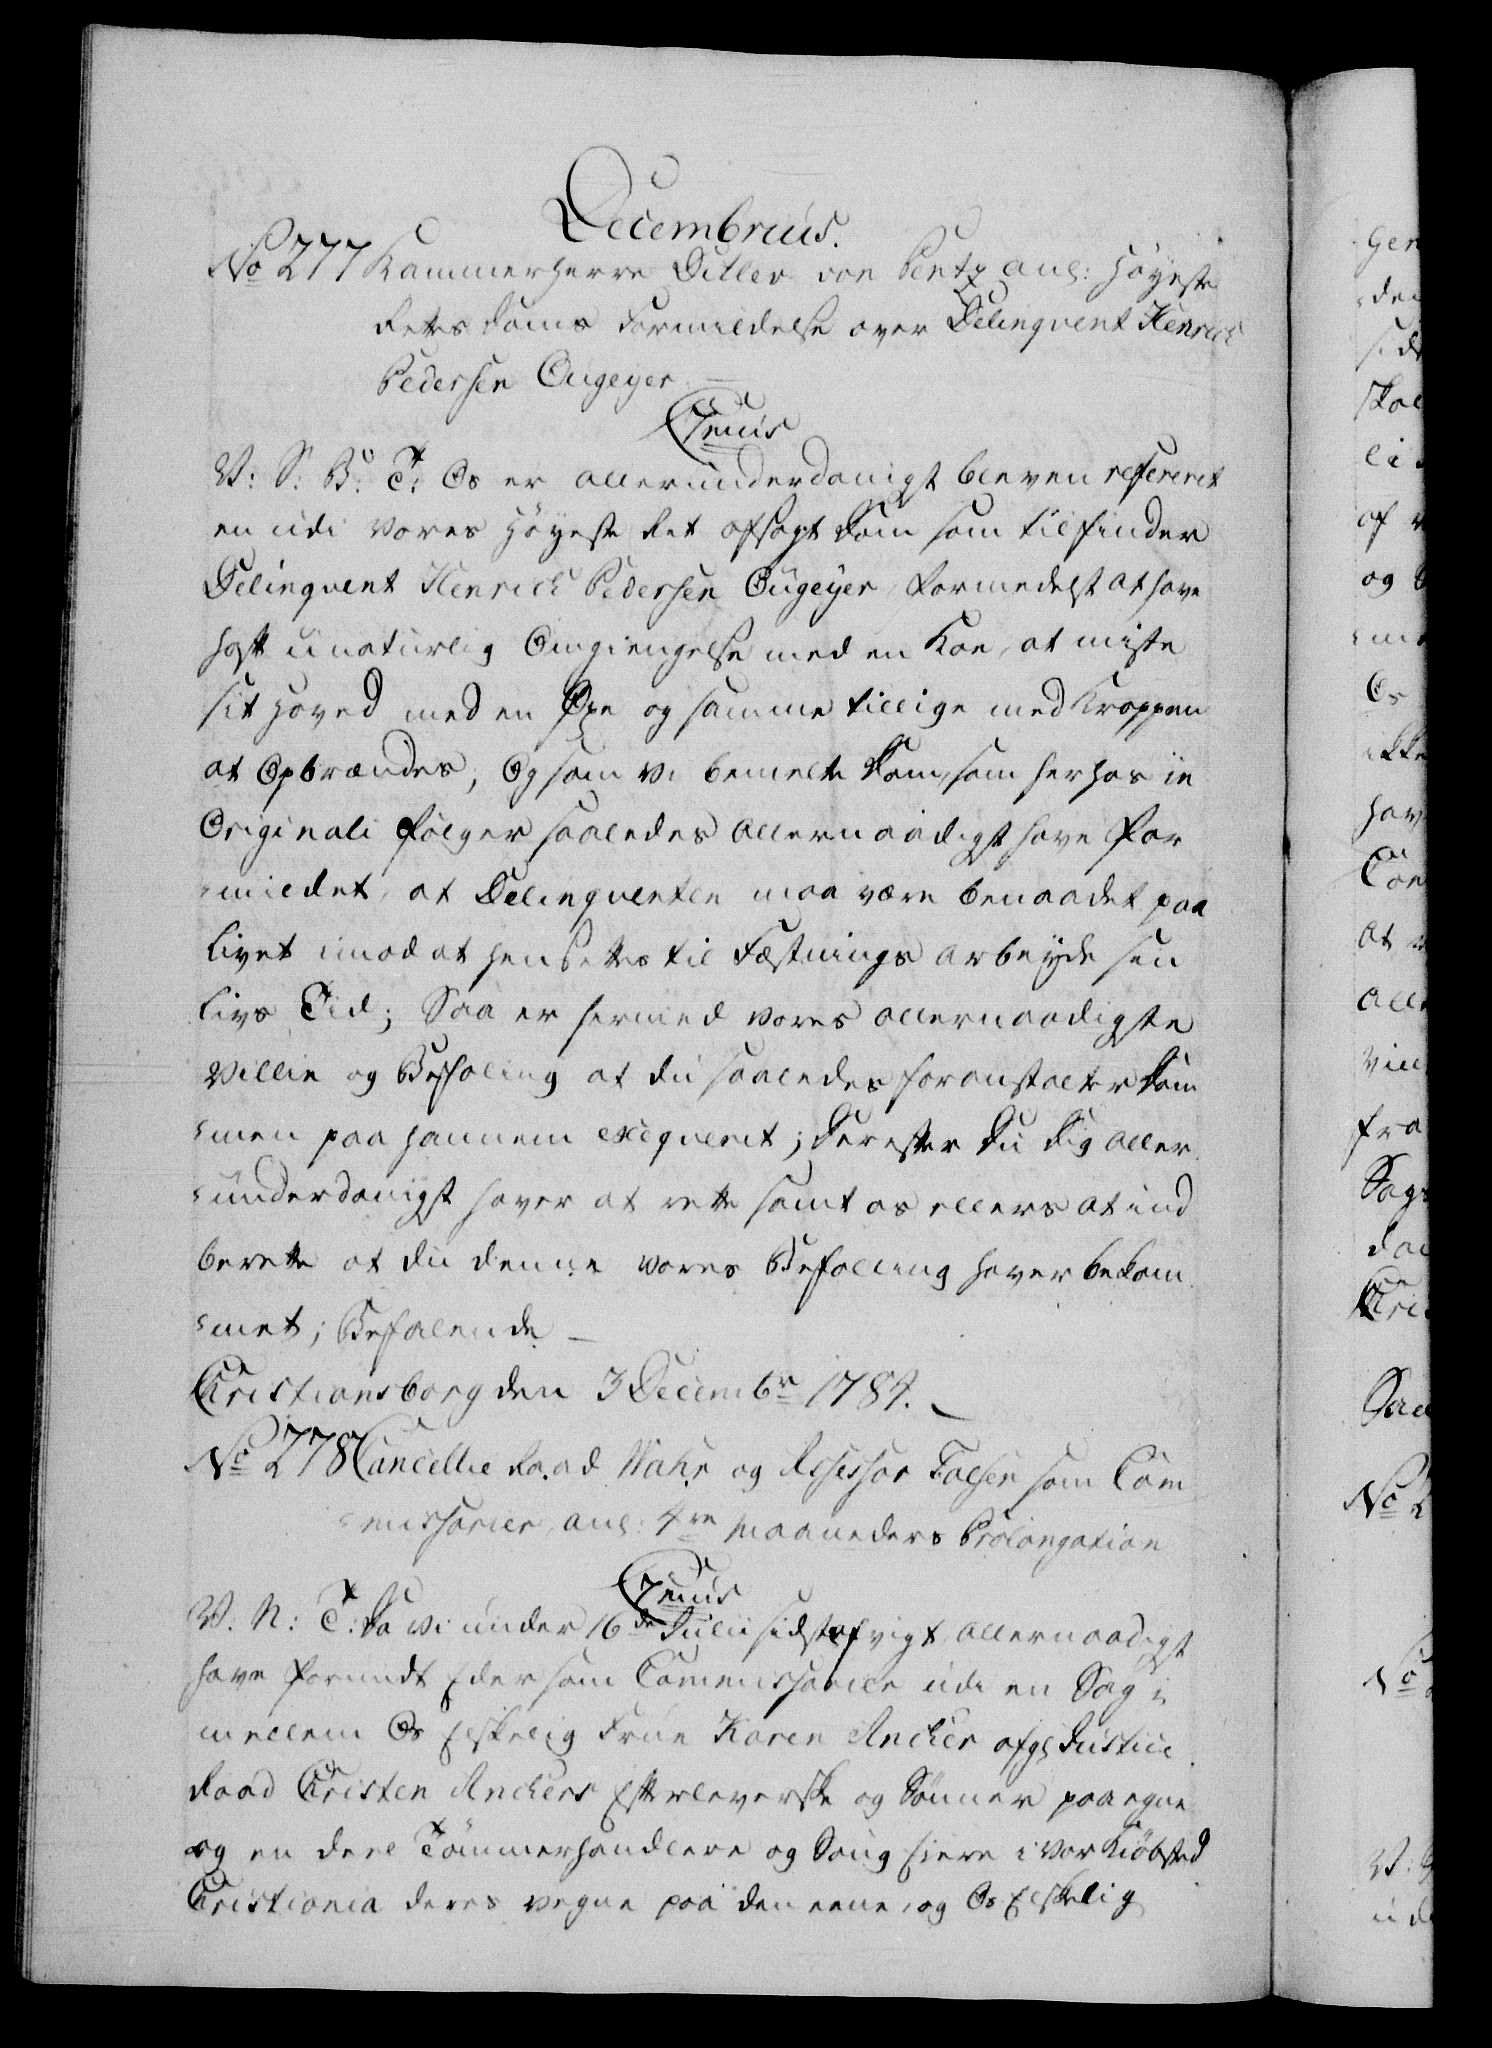 Decembrius.
No 277 Kammerherre Ditlev von Pentz ang: Høyeste
Rettes Doms Formildelse over Delinqvent Henrich
Pedersen Ougeyer
Genus
V: S: B: T: Os er allerunderdanigst bleven refereret
en udi Vores Høyeste Ret afsagt Dom som tilfinder
Delinqvent Henrich Pedersen Ougeyer, formedelst at have
haft unaturlig Omgiengelse med en Koe, at miste
sit Hoved med en Øxe og samme tillige med Kroppen
at Opbrændes, Og som Vi bemelte Dom, som herhos in
Originali følger saaledes Allernaadigst have for
mildet, at Delinqventen maa være benaadet paa
Livet imod at hensettes til Fæstnings Arbeyde sin
Livs Tid; Saa er hermed Vores allernaadigste
Villie og Befaling at du saaledes foranstalter Dom
men paa hannem exeqveret; Derefter Du Dig aller
underdanigst haver at rette samt os ellers at ind
berette at du denne Vores Befalling haver bekom
met; Befalende
Christiansborg den 3 Decembr 1784.
No 278 Cancellie Raad og Assessor Falsen som Com
missarier, ang: 4re Maaneders Prolongation
Genus
V. N: T: Da Vi under 16de Julii sidstafvigt, allernaadigst
have forundt Eder som Commissarier udi en Sag i
mellem Os Elskelig Frue Karen Ancher afgl Justice
Raad Christen Anchers Efterleverske og Sønner paa egne
og en deel Tømmerhandlere og Saug Eiere i Vor Kiøbsted
Christiania deres Vegne paa den eene, og Os Elskelig